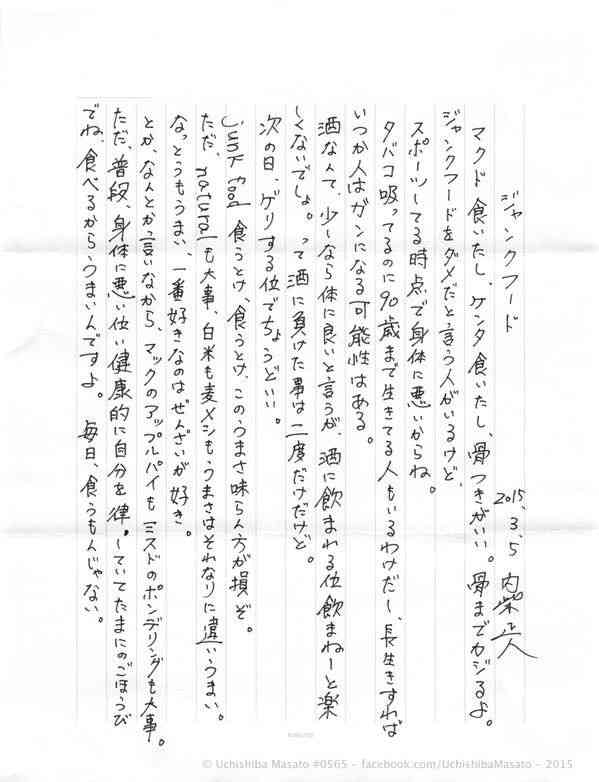 ジャンクフード
2015.3.5 内柴正人
マクド食いたし、ケンタ食いたし、骨つきがいい。骨までカジるよ。
ジャンクフードをダメだと言う人がいるけど、
スポーツしてる時点で身体に悪いからね。
タバコ吸ってるのに90歳まで生きてる人もいるわけだし、長生きすれば
いつか人はガンになる可能性はある。
酒なんて、少しなら体に良いと言うが、酒に飲まれる位飲まねーと楽
しくないでしょ。って酒に負けた事は二度だけだけど。
次の日、ゲリする位でちょうどいい。
Junk food 食うとけ、食うとけ、このうまさ味らん方が損ぞ。
ただ、naturalも大事、白米も麦メシもうまさはそれなりに違いうまい。
なっとうもうまい、一番好きなのはぜんざいが好き。
とか、なんとか言いながら、マックのアップルパイもミスドのポンデリングも大事。
ただ、普段、身体に悪い位い健康的に自分を律していてたまにのごほうび
でね、食べるからうまいんですよ。 毎日、食うもんじゃない。
© Uchishiba Masato #0565 - facebook.com/UchishibaMasato - 2015